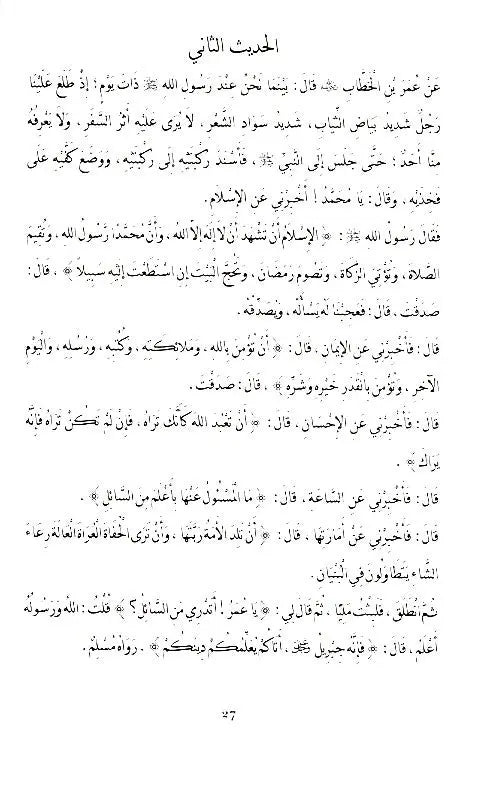 الحديث الثاني
عَنْ عُمَرَ بْنِ الْخَطَّابِ ﵁ قَالَ: بَيْنَمَا نَحْنُ عِنْدَ رَسُولِ اللهِ ﷺ ذَاتَ يَوْمٍ؛ إِذْ طَلَعَ عَلَيْنَا
رَجُلٌ شَدِيدُ بَيَاضِ الثِّيَابِ، شَدِيدُ سَوَادِ الشَّعْرِ، لَا يُرَى عَلَيْهِ أَثَرُ السَّفَرِ، وَلَا يَعْرِفُهُ
مِنَّا أَحَدٌ؛ حَتَّى جَلَسَ إِلَى النَّبِيِّ ﷺ، فَأَسْنَدَ رُكْبَتَيْهِ إِلَى رُكْبَتَيْهِ، وَوَضَعَ كَفَّيْهِ عَلَى
فَخِذَيْهِ، وَقَالَ: يَا مُحَمَّدُ! أَخْبِرْنِي عَنِ الإِسْلَامِ.
فَقَالَ رَسُولُ اللهِ ﷺ: ﴿ الإِسْلَامُ أَنْ تَشْهَدَ أَنْ لَا إِلَهَ إِلَّا اللهُ، وَأَنَّ مُحَمَّدًا رَسُولُ اللهِ، وَتُقِيمَ
الصَّلَاةَ، وَتُؤْتِيَ الزَّكَاةَ، وَتَصُومَ رَمَضَانَ، وَتَحُجَّ الْبَيْتَ إِنِ اسْتَطَعْتَ إِلَيْهِ سَبِيلًا ﴾، قَالَ:
صَدَقْتَ، قَالَ: فَعَجِبْنَا لَهُ يَسْأَلُهُ، وَيُصَدِّقُهُ.
قَالَ: فَأَخْبِرْنِي عَنِ الإِيمَانِ، قَالَ: ﴿ أَنْ تُؤْمِنَ بِاللهِ، وَمَلَائِكَتِهِ، وَكُتُبِهِ، وَرُسُلِهِ، وَالْيَوْمِ
الآخِرِ، وَتُؤْمِنَ بِالْقَدَرِ خَيْرِهِ وَشَرِّهِ ﴾، قَالَ: صَدَقْتَ.
قَالَ: فَأَخْبِرْنِي عَنِ الإِحْسَانِ، قَالَ: ﴿ أَنْ تَعْبُدَ اللهَ كَأَنَّكَ تَرَاهُ، فَإِنْ لَمْ تَكُنْ تَرَاهُ فَإِنَّهُ
يَرَاكَ ﴾.
قَالَ: فَأَخْبِرْنِي عَنِ السَّاعَةِ، قَالَ: ﴿ مَا الْمَسْئُولُ عَنْهَا بِأَعْلَمَ مِنَ السَّائِلِ ﴾.
قَالَ: فَأَخْبِرْنِي عَنْ أَمَارَتِهَا، قَالَ: ﴿ أَنْ تَلِدَ الأَمَةُ رَبَّتَهَا، وَأَنْ تَرَى الْحُفَاةَ الْعُرَاةَ الْعَالَةَ رِعَاءَ
الشَّاءِ يَتَطَاوَلُونَ فِي الْبُنْيَانِ.
ثُمَّ انْطَلَقَ، فَلَبِثْتُ مَلِيًّا، ثُمَّ قَالَ لِي: ﴿ يَا عُمَرُ! أَتَدْرِي مَنِ السَّائِلُ؟ ﴾ قُلْتُ: اللهُ وَرَسُولُهُ
أَعْلَمُ، قَالَ: ﴿ فَإِنَّهُ جِبْرِيلُ ﵇، أَتَاكُمْ يُعَلِّمُكُمْ دِينَكُمْ ﴾. رَوَاهُ مُسْلِمٌ.
27